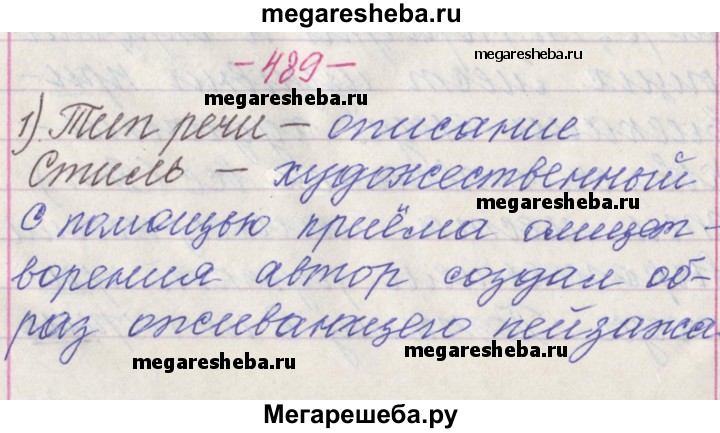 megaresheba.ru
megaresheba.ru
-489-
megaresheba.ru
1) Тип речи – описание
Стиль – художественный
megaresheba.ru
С помощью приёма олицет-
ворения автор создал об-
раз оживающего пейзажа
megaresheba.ru
megaresheba.ru
Мегарешеба.ру